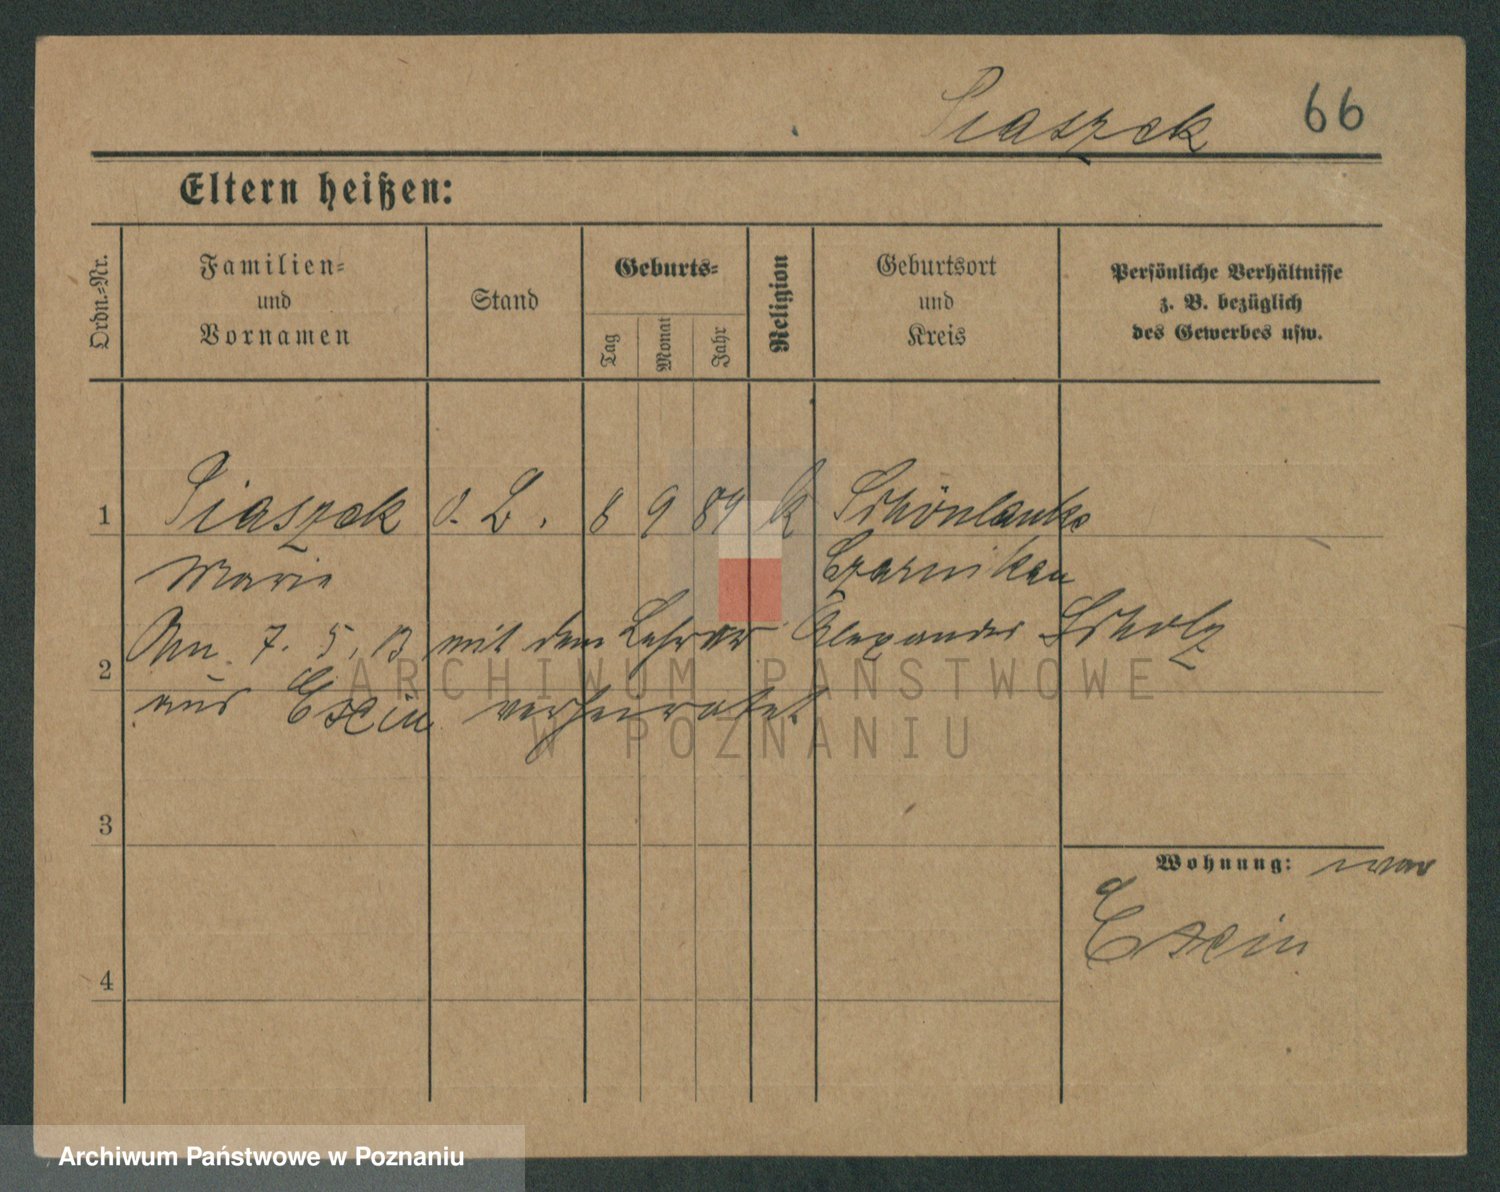 Siaszek 66
Eltern heißen:
Ordn.-Nr.
Familien-
und
Vornamen
Stand
Geburts-
Tag
Monat
Jahr
Religion
Geburtsort
und
Kreis
Persönliche Verhältnisse
z. B. bezüglich
des Gewerbes usw.
1 Siaszek o. L. 8 9 89 k Schönlanke
Marie Czarnikau
Am 7. 5. 13 mit dem Lehrer Alexander Scholz
2
aus Exin verheiratet
3
Wohnung:
Exin
4
ARCHIWUM PAŃSTWOWE
W POZNANIU
Archiwum Państwowe w Poznaniu